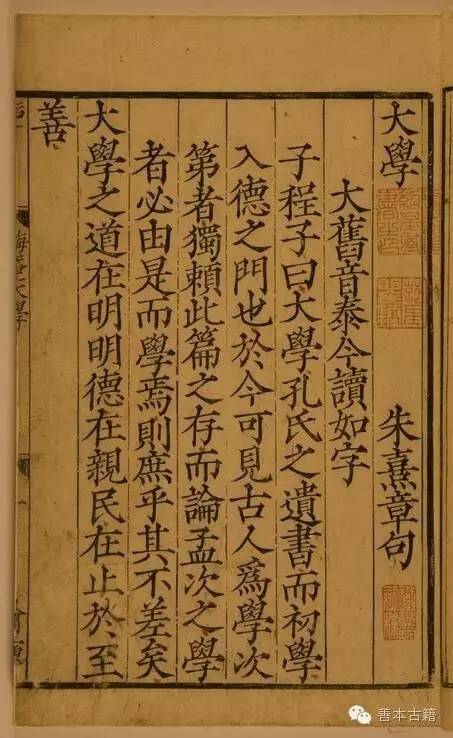 大學
朱熹章句
大舊音泰今讀如字
子程子曰大學孔氏之遺書而初學
入德之門也於今可見古人爲學次
第者獨賴此篇之存而論孟次之學
者必由是而學焉則庶乎其不差矣
大學之道在明明德在親民在止於至
善
善本古籍